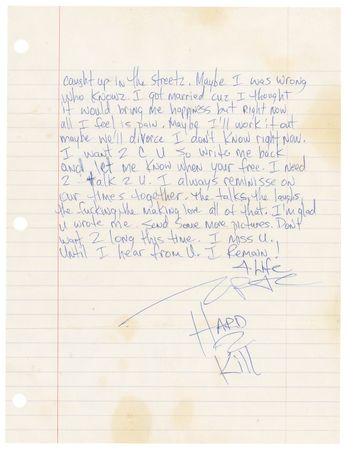 caught up in the streetz. Maybe I was wrong
who knowz. I got married cuz I thought
it would bring me happiness but right now
all I feel is pain. Maybe I'll work it out
maybe we'll divorce I don't know right now.
I want 2 C U so write me back
and let me know when your free. I need
2 talk 2 U. I always reminisse on
our times together. The talks, the laughs,
the fucking, the making love all of that. I'm glad
u wrote me. Send some more pictures. Don't
wait 2 long this time. I miss U.
Until I hear from U. I Remain!
4 Life
HARD
2
Kill